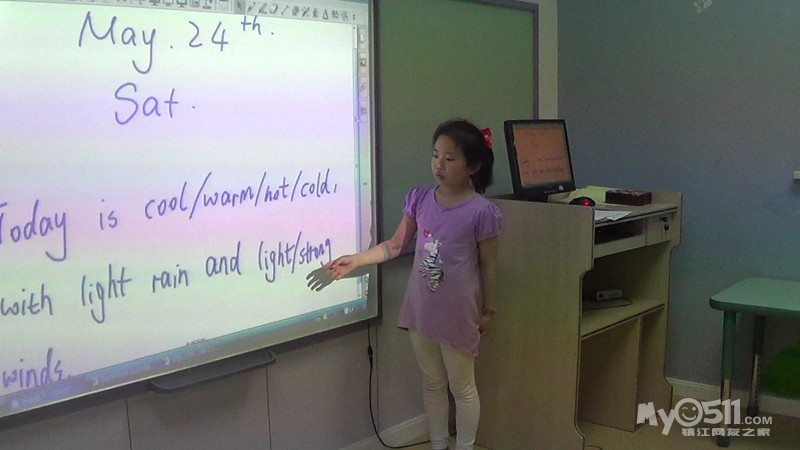 May. 24th.
Sat.
Today is cool/warm/hot/cold,
with light rain and light/strong
winds.
My0511.com
镇江网友之家